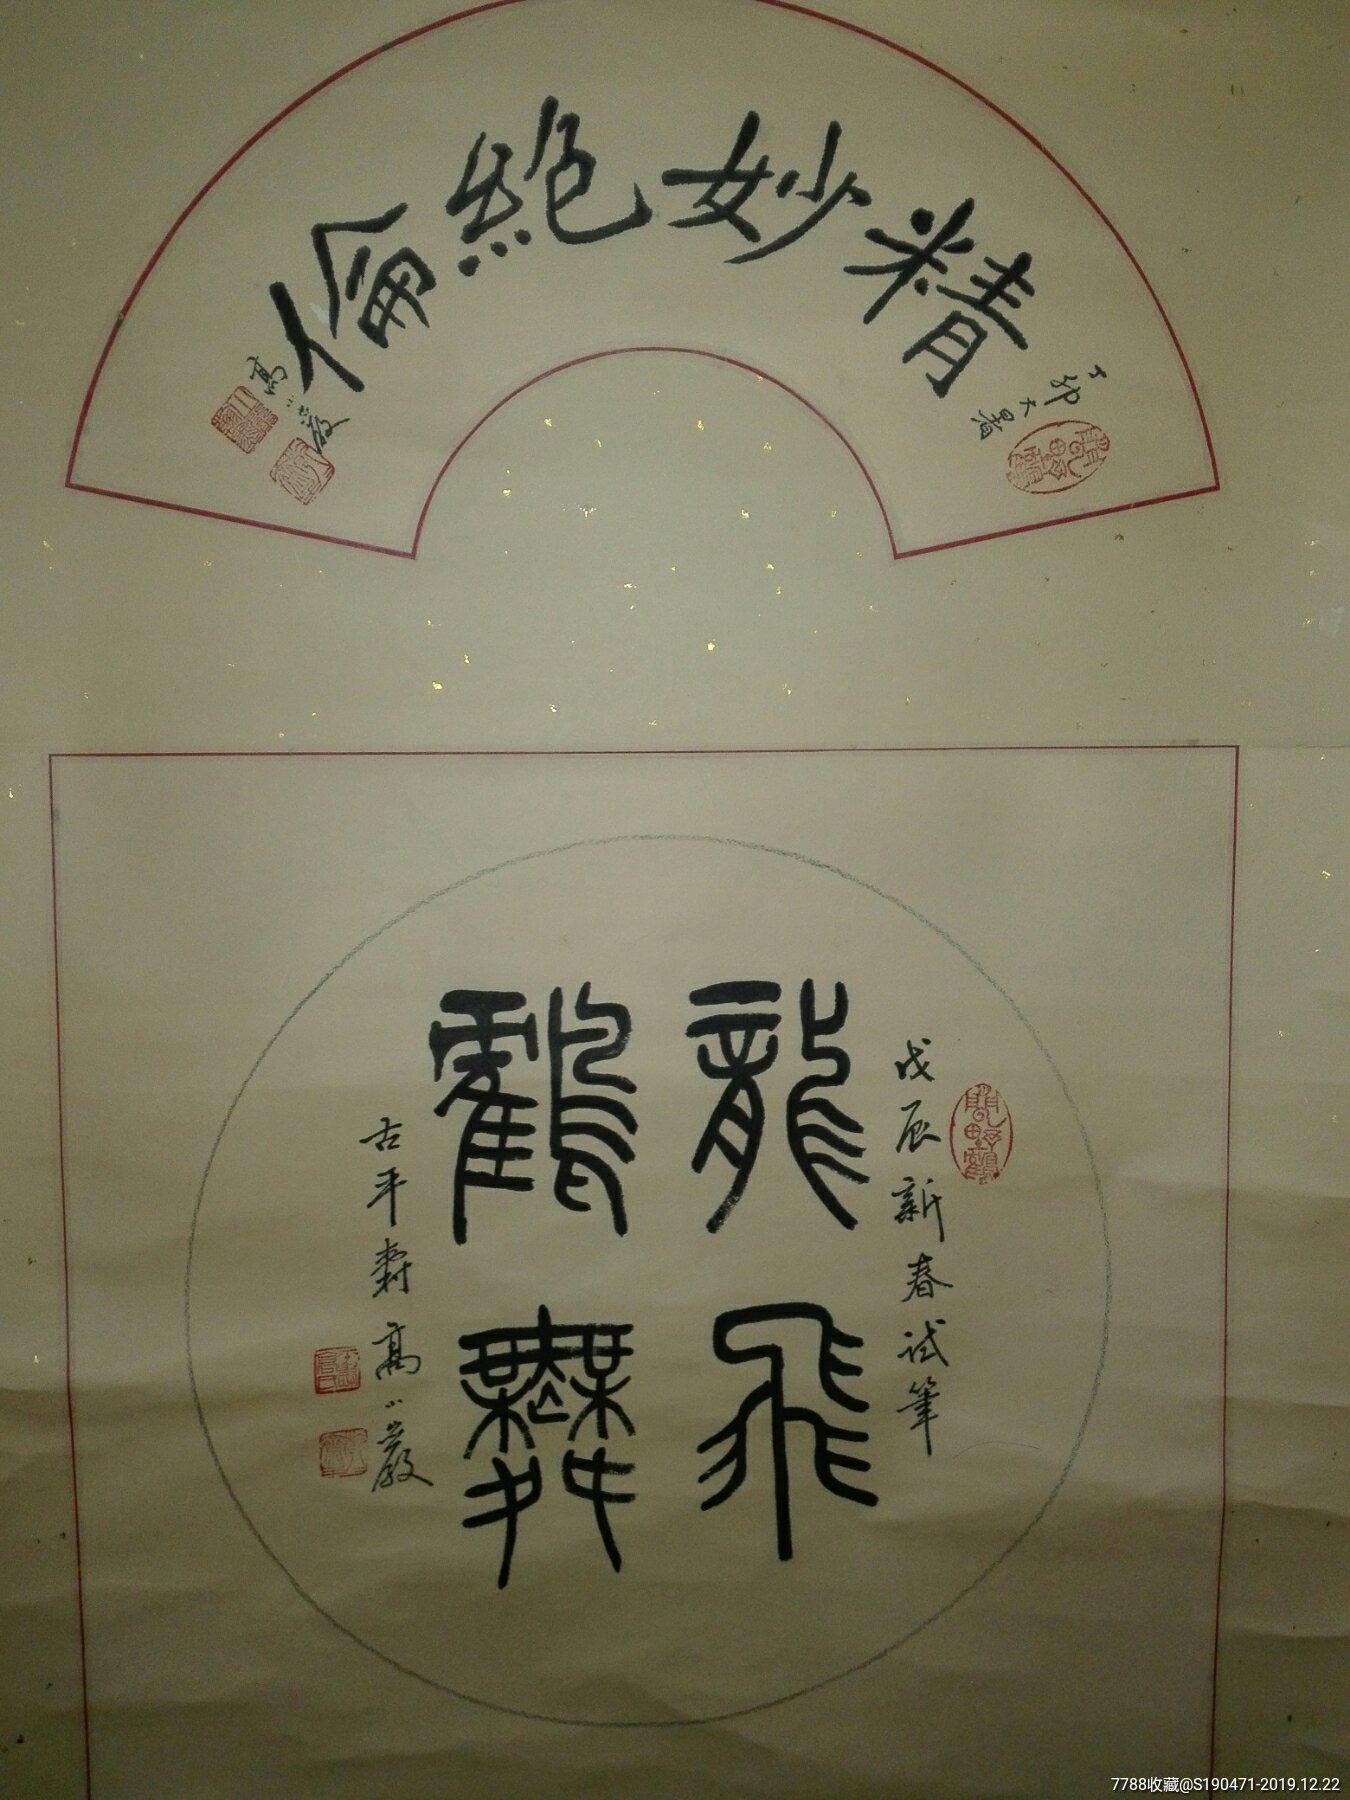 精妙絕倫
丁卯大暑
高小巖
龍飛
鶴舞
戊辰新春試筆
古平壽高小巖
7788收藏@S190471-2019.12.22